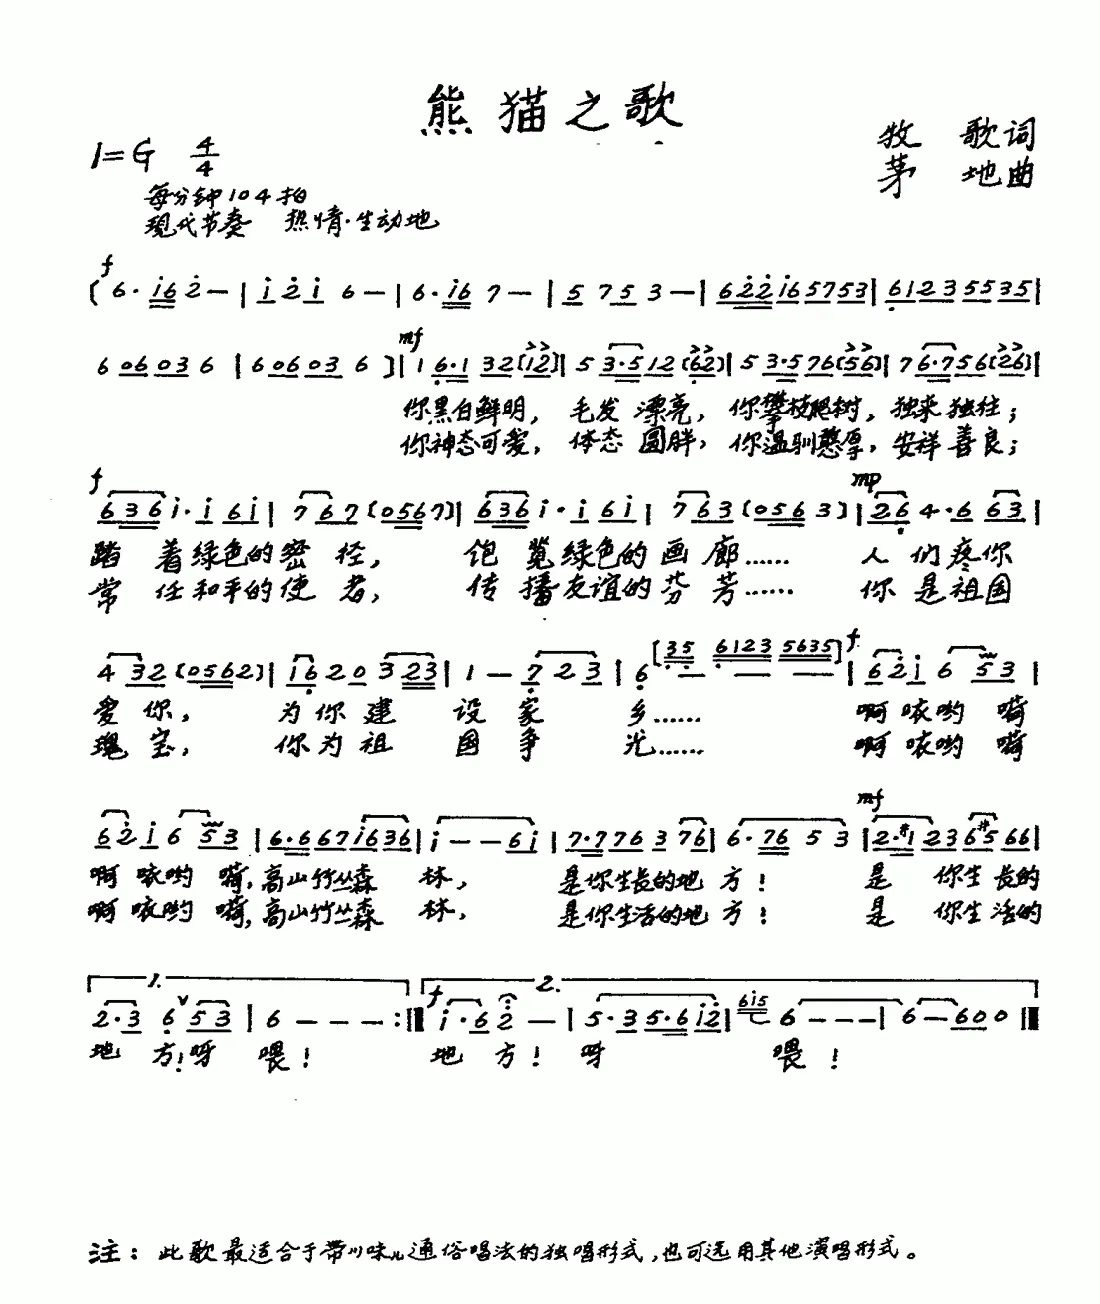 熊猫之歌
1=G 4/4
牧 歌词
茅 地曲
每分钟104拍
现代节奏 热情·生动地
f
( 6· i6 2 — | i 2 i 6 — | 6· i6 7 — | 5 7 5 3 — | 6 2 2 i 6 5 7 5 3 | 6 1 2 3 5 5 3 5 |
mf
6 0 6 0 3 6 | 6 0 6 0 3 6 ) | 1 6·1 3 2 (i 2) | 5 3·5 1 2 (6 2) | 5 3·5 7 6 (5 6) | 7 6·7 5 6 (2 6) |
你黑白鲜明, 毛发 漂亮, 你攀枝爬树, 独来 独往;
你神态可爱, 体态 圆胖, 你温驯憨厚, 安祥 善良;
f mp
6 3 6 i· i 6 i | 7 6 7 (0 5 6 7) | 6 3 6 i· i 6 i | 7 6 3 (0 5 6 3) | 2 6 4·6 6 3 |
踏 着绿色的密 径, 饱 览绿色的画 廊…… 人 们疼你
常 任和平的使 者, 传 播友谊的芬 芳…… 你 是祖国
4 3 2 (0 5 6 2) | i 6 2 0 3 2 3 | 1 — 7 2 3 | 6 [3 5 6 1 2 3 5 6 3 5] — — — | f 6 2 i 6 5 3 |
爱 你, 为你建 设 家 乡…… 啊 咳哟 嗬
瑰 宝, 你为祖 国 争 光…… 啊 咳哟 嗬
mf
6 2 i 6 5 3 | 6·6 6 7 i 6 3 6 | i — — 6 i | 7·7 7 6 3 7 6 | 6· 7 6 5 3 | 2·#1 2 3 6 #5 6 6 |
啊 咳哟 嗬, 高山竹丛森 林, 是你生长的地 方! 是 你生长的
啊 咳哟 嗬, 高山竹丛森 林, 是你生活的地 方! 是 你生活的
1. 2.
2·3 6 ∨ 5 3 | 6 — — — :‖ f i·6 2 — | 5·3 5·6 i 2 | 6i5 6 — — — | 6 — 6 0 0 ‖
地 方! 呀 喂! 地 方! 呀 喂!
注: 此歌最适合于带川味儿通俗唱法的独唱形式,也可选用其他演唱形式。